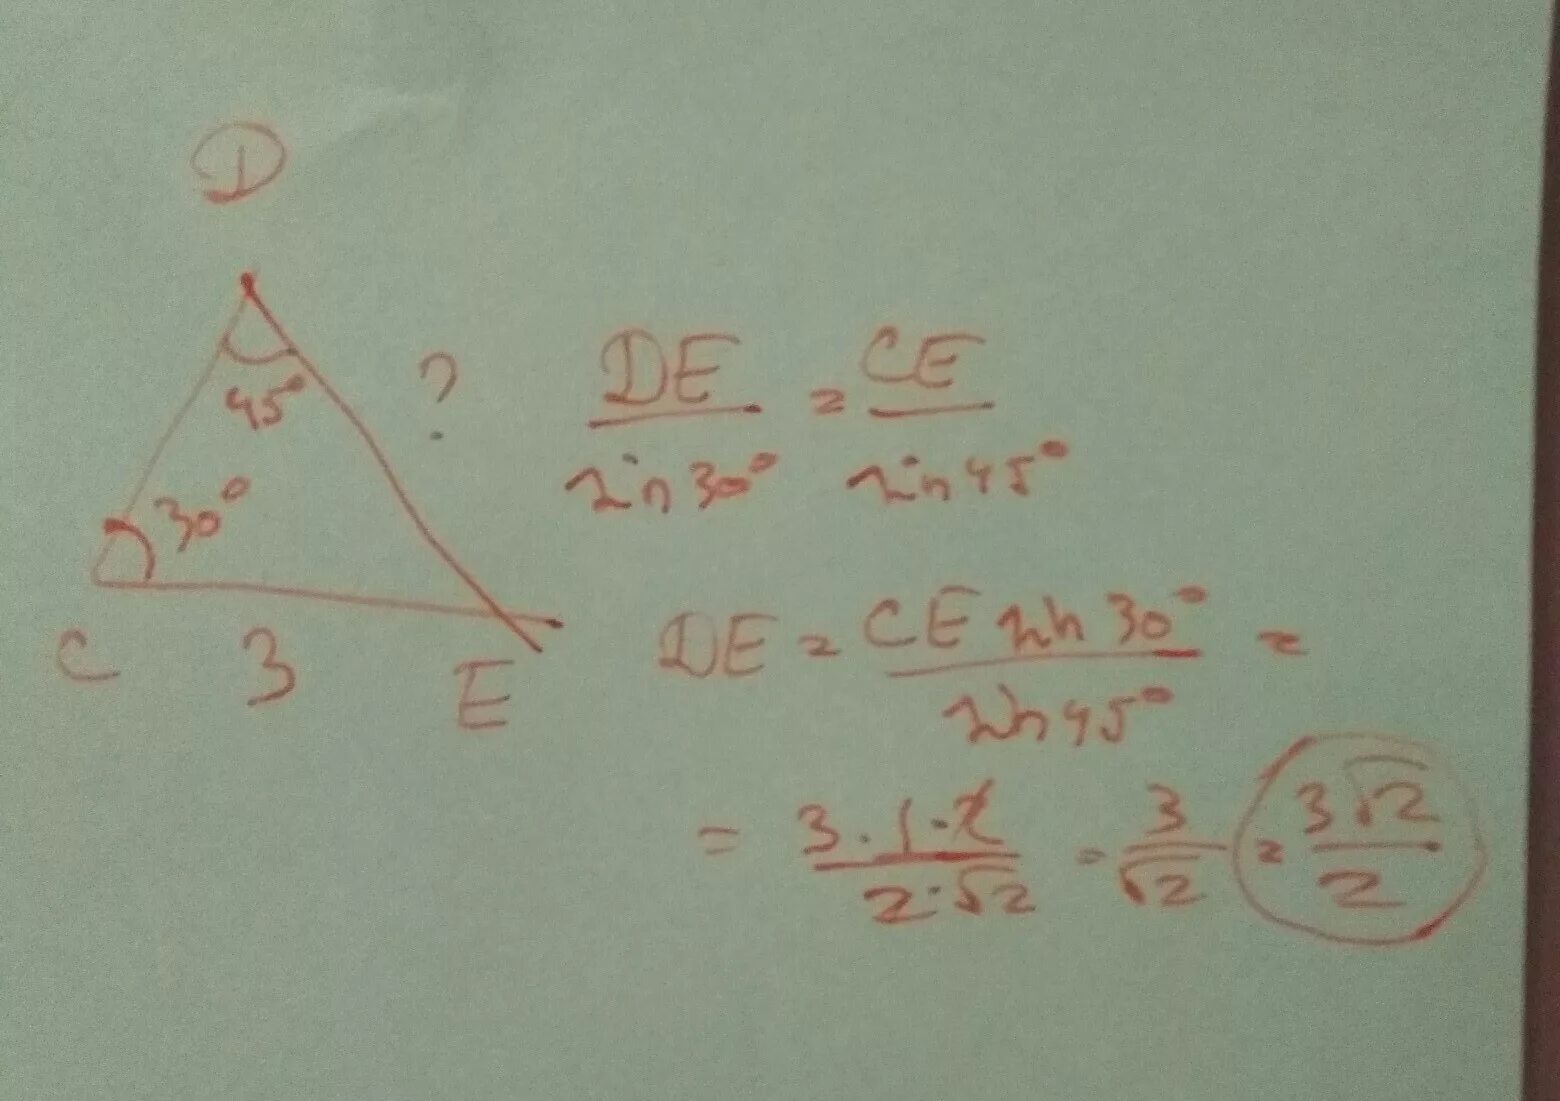 D
45°
?
30°
C 3 E
DE / sin 30° = CE / sin 45°
DE = CE sin 30° / sin 45° =
= 3 · 1 · 2 / 2 · √2 = 3 / √2 = 3√2 / 2